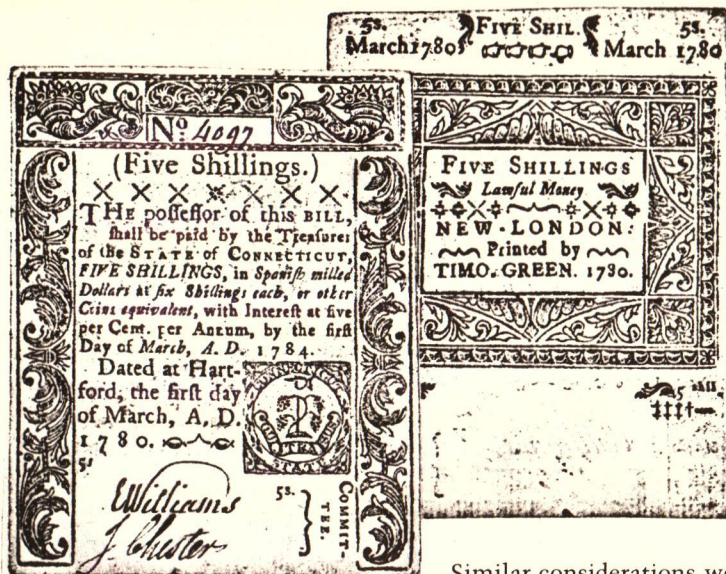 Nº 4097
(Five Shillings.)
THE poſſeſſor of this BILL,
ſhall be paid by the Treaſurer
of the STATE of CONNECTICUT,
FIVE SHILLINGS, in Spaniſh milled
Dollars at ſix Shillings each, or other
Coins equivalent, with Intereſt at five
per Cent. per Annum, by the firſt
Day of March, A. D. 1784.
Dated at Hart-
ford, the firſt day
of March, A. D.
1780.
5s
CONNECTICUT
STATE
EWilliams
J. Chester
5s.
COMMIT-
TEE.
5s. FIVE SHIL. 5s.
March 1780 March 1780
FIVE SHILLINGS
Lawful Money
NEW-LONDON:
Printed by
TIMO. GREEN. 1780.
Similar considerations we